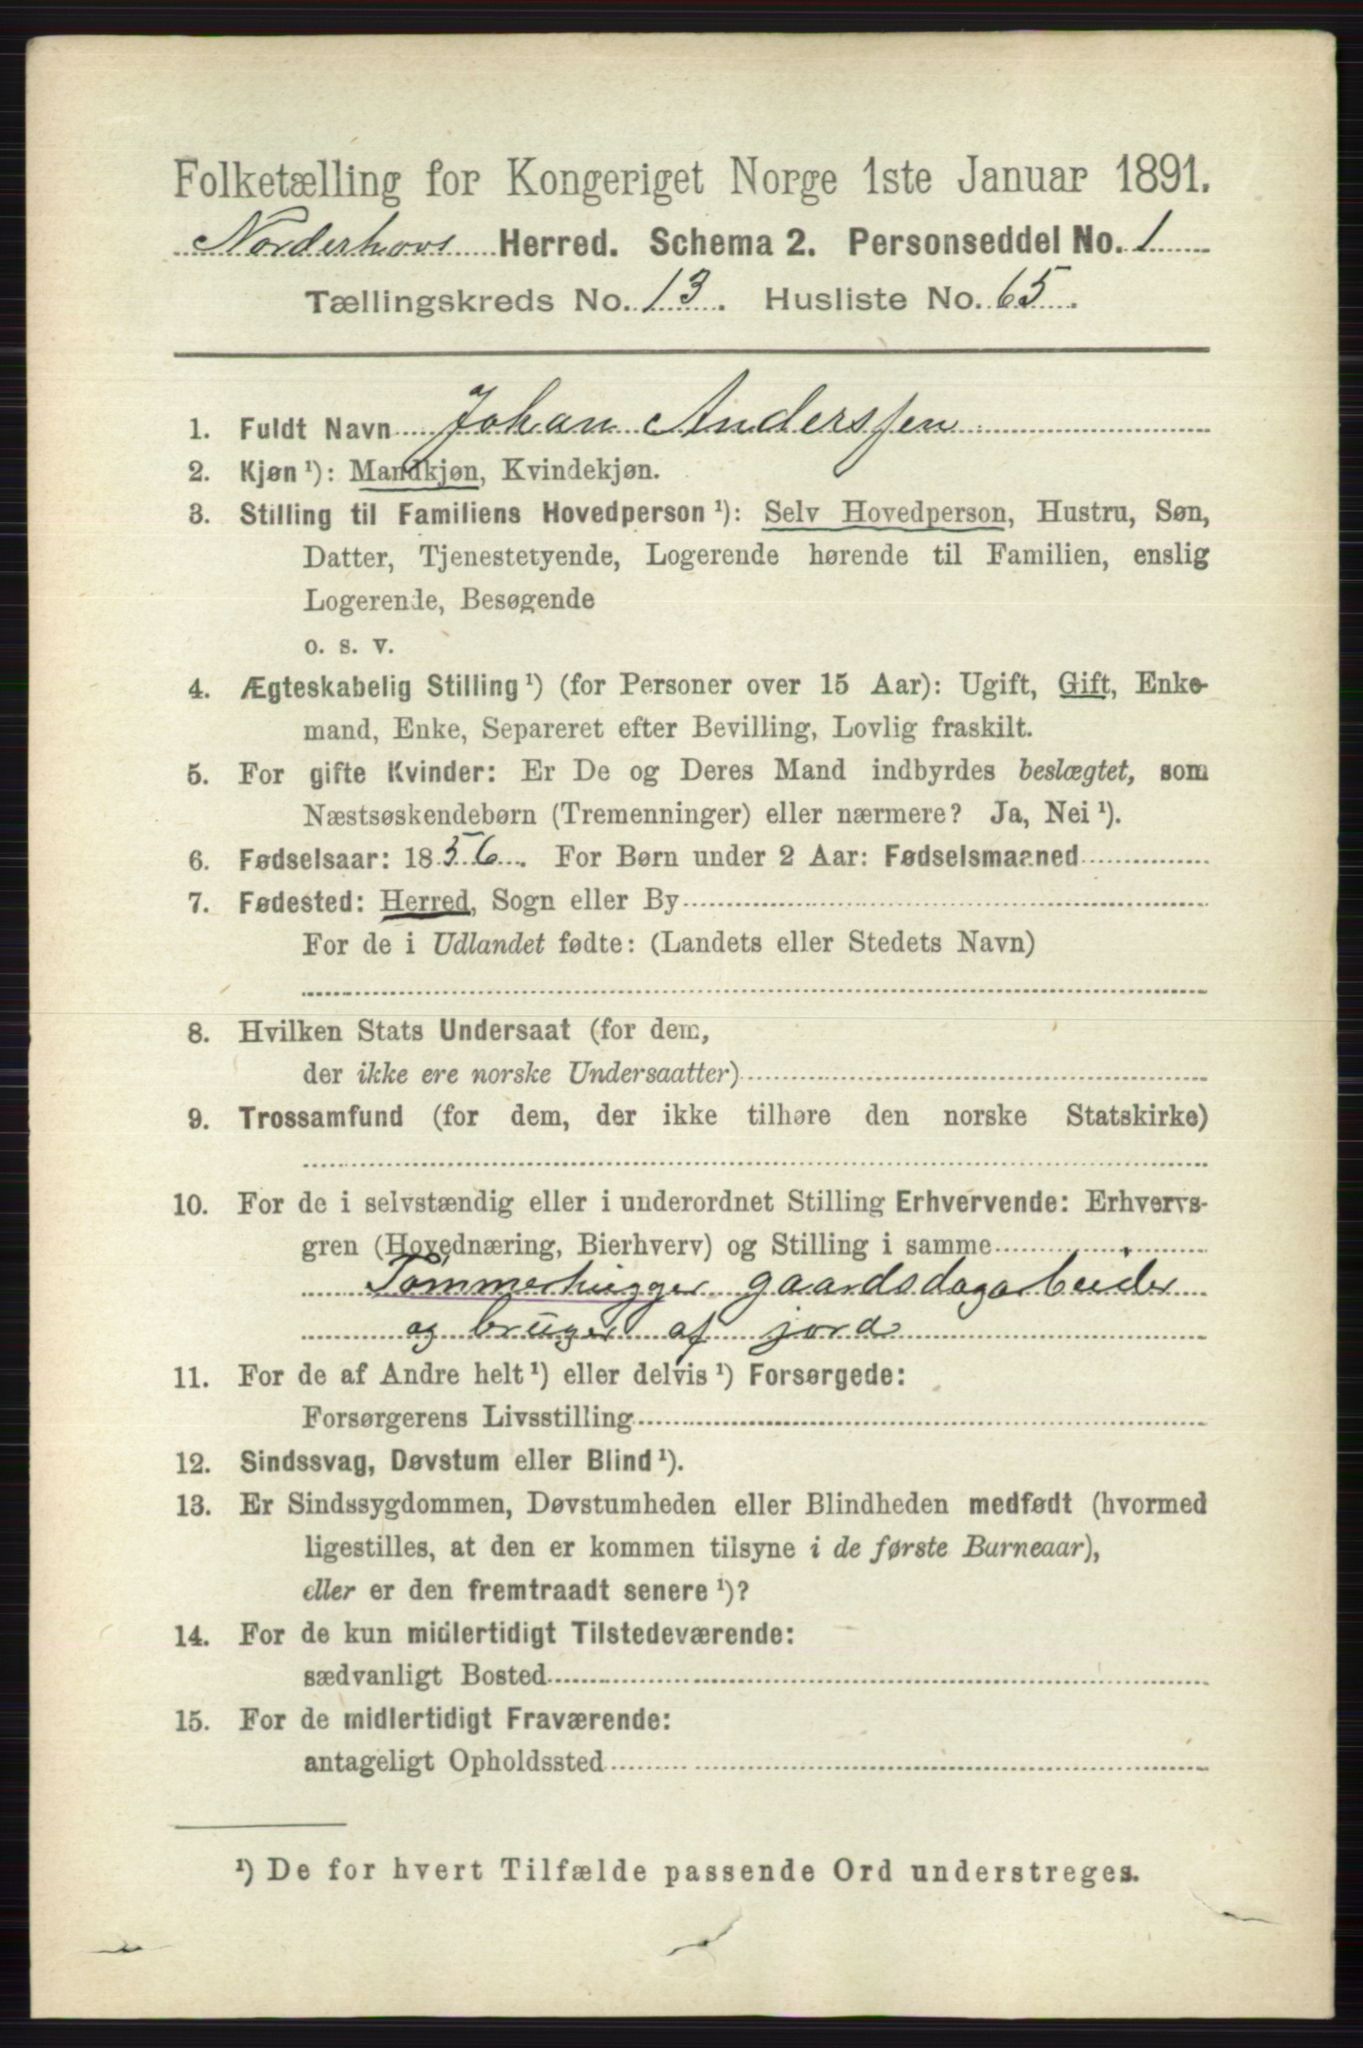 Folketælling for Kongeriget Norge 1ste Januar 1891.
Norderhovs Herred. Schema 2. Personseddel No. 1
Tællingskreds No. 13. Husliste No. 65.
1. Fuldt Navn Johan Anderssen
2. Kjøn¹): Mandkjøn, Kvindekjøn.
3. Stilling til Familiens Hovedperson¹): Selv Hovedperson, Hustru, Søn,
Datter, Tjenestetyende, Logerende hørende til Familien, enslig
Logerende, Besøgende
o. s. v.
4. Ægteskabelig Stilling¹) (for Personer over 15 Aar): Ugift, Gift, Enke-
mand, Enke, Separeret efter Bevilling, Lovlig fraskilt.
5. For gifte Kvinder: Er De og Deres Mand indbyrdes beslægtet, som
Næstsøskendebørn (Tremenninger) eller nærmere? Ja, Nei¹).
6. Fødselsaar: 1856. For Børn under 2 Aar: Fødselsmaaned
7. Fødested: Herred, Sogn eller By
For de i Udlandet fødte: (Landets eller Stedets Navn)
8. Hvilken Stats Undersaat (for dem,
der ikke ere norske Undersaatter)
9. Trossamfund (for dem, der ikke tilhøre den norske Statskirke)
10. For de i selvstændig eller i underordnet Stilling Erhvervende: Erhvervs-
gren (Hovednæring, Bierhverv) og Stilling i samme
Tømmerhugger gaardsdagarbeider
og bruger af jord
11. For de af Andre helt¹) eller delvis¹) Forsørgede:
Forsørgerens Livsstilling
12. Sindssvag, Døvstum eller Blind¹).
13. Er Sindssygdommen, Døvstumheden eller Blindheden medfødt (hvormed
ligestilles, at den er kommen tilsyne i de første Barneaar),
eller er den fremtraadt senere¹)?
14. For de kun midlertidigt Tilstedeværende:
sædvanligt Bosted
15. For de midlertidigt Fraværende:
antageligt Opholdssted
¹) De for hvert Tilfælde passende Ord understreges.